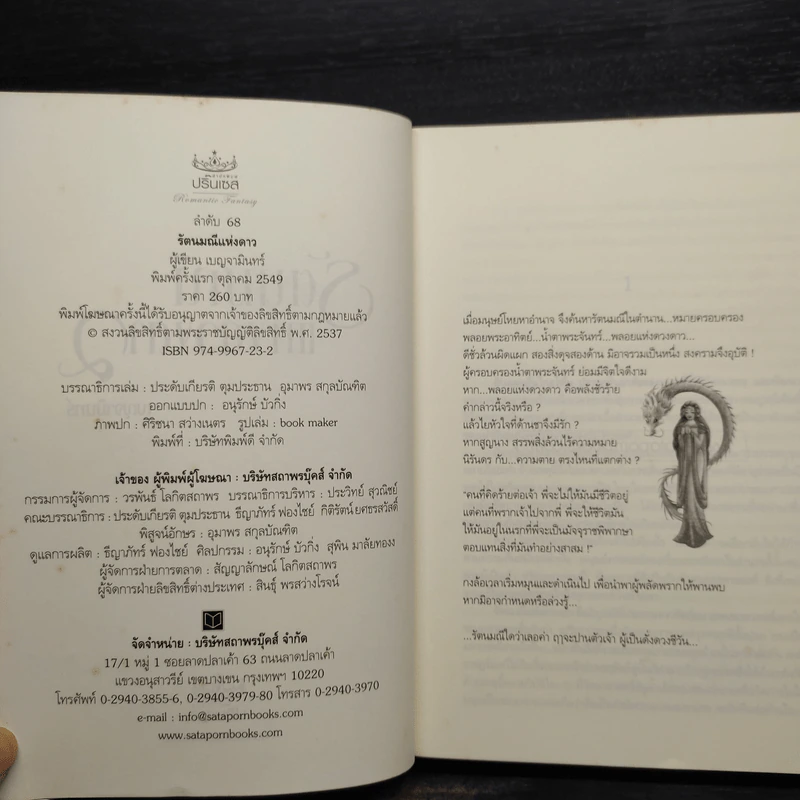 สำนักพิมพ์
ปริ๊นเซส
Romantic Fantasy
ลำดับ 68
รัตนมณีแห่งดาว
ผู้เขียน เบญจามินทร์
พิมพ์ครั้งแรก ตุลาคม 2549
ราคา 260 บาท
พิมพ์โฆษณาครั้งนี้ได้รับอนุญาตจากเจ้าของลิขสิทธิ์ตามกฎหมายแล้ว
© สงวนลิขสิทธิ์ตามพระราชบัญญัติลิขสิทธิ์ พ.ศ. 2537
ISBN 974-9967-23-2
บรรณาธิการเล่ม : ประดับเกียรติ ตุมประธาน อุมาพร สกุลบัณฑิต
ออกแบบปก : อนุรักษ์ บัวกิ่ง
ภาพปก : ศิริชนา สว่างเนตร รูปเล่ม : book maker
พิมพ์ที่ : บริษัทพิมพ์ดี จำกัด
เจ้าของ ผู้พิมพ์ผู้โฆษณา : บริษัทสถาพรบุ๊คส์ จำกัด
กรรมการผู้จัดการ : วรพันธ์ โลกิตสถาพร บรรณาธิการบริหาร : ประวิทย์ สุวณิชย์
คณะบรรณาธิการ : ประดับเกียรติ ตุมประธาน ธีญาภัทร์ ฟองไชย์ กิติรัตน์ ยศธรสวัสดิ์
พิสูจน์อักษร : อุมาพร สกุลบัณฑิต
ดูแลการผลิต : ธีญาภัทร์ ฟองไชย์ ศิลปกรรม : อนุรักษ์ บัวกิ่ง สุพิน มาลัยทองง
ผู้จัดการฝ่ายการตลาด : สัญญาลักษณ์ โลกิตสถาพร
ผู้จัดการฝ่ายลิขสิทธิ์ต่างประเทศ : สินธุ์ พรสว่างโรจน์
จัดจำหน่าย : บริษัทสถาพรบุ๊คส์ จำกัด
17/1 หมู่ 1 ซอยลาดปลาเค้า 63 ถนนลาดปลาเค้า
แขวงอนุสาวรีย์ เขตบางเขน กรุงเทพฯ 10220
โทรศัพท์ 0-2940-3855-6, 0-2940-3979-80 โทรสาร 0-2940-3970
e-mail : info@satapornbooks.com
www.satapornbooks.com
เมื่อมนุษย์โหยหาอำนาจ จึงค้นหารัตนมณีในตำนาน...หมายครอบครอง
พลอยพระอาทิตย์...น้ำตาพระจันทร์...พลอยแห่งดวงดาว...
ดีชั่วล้วนผิดแผก สองสิ่งดุจสองด้าน มิอาจรวมเป็นหนึ่ง สงครามจึงอุบัติ !
ผู้ครอบครองน้ำตาพระจันทร์ ย่อมมีจิตใจดีงาม
หาก...พลอยแห่งดวงดาว คือพลังชั่วร้าย
คำกล่าวนี้จริงหรือ ?
แล้วไยหัวใจที่ด้านชาจึงมีรัก ?
หากสูญนาง สรรพสิ่งล้วนไร้ความหมาย
นิรันดร กับ...ความตาย ตรงไหนที่แตกต่าง ?
"คนที่คิดร้ายต่อเจ้า พี่จะไม่ให้มันมีชีวิตอยู่
แต่คนที่พรากเจ้าไปจากพี่ พี่จะให้ชีวิตมัน
ให้มันอยู่ในนรกที่พี่จะเป็นมัจจุราชพิพากษา
ตอบแทนสิ่งที่มันทำอย่างสาสม !"
กงล้อเวลาเริ่มหมุนและดำเนินไป เพื่อนำพาผู้พลัดพรากให้พานพบ
หากมิอาจกำหนดหรือล่วงรู้...
...รัตนมณีใดว่าเลอค่า ฤๅจะปานตัวเจ้า ผู้เป็นดั่งดวงชีวัน...